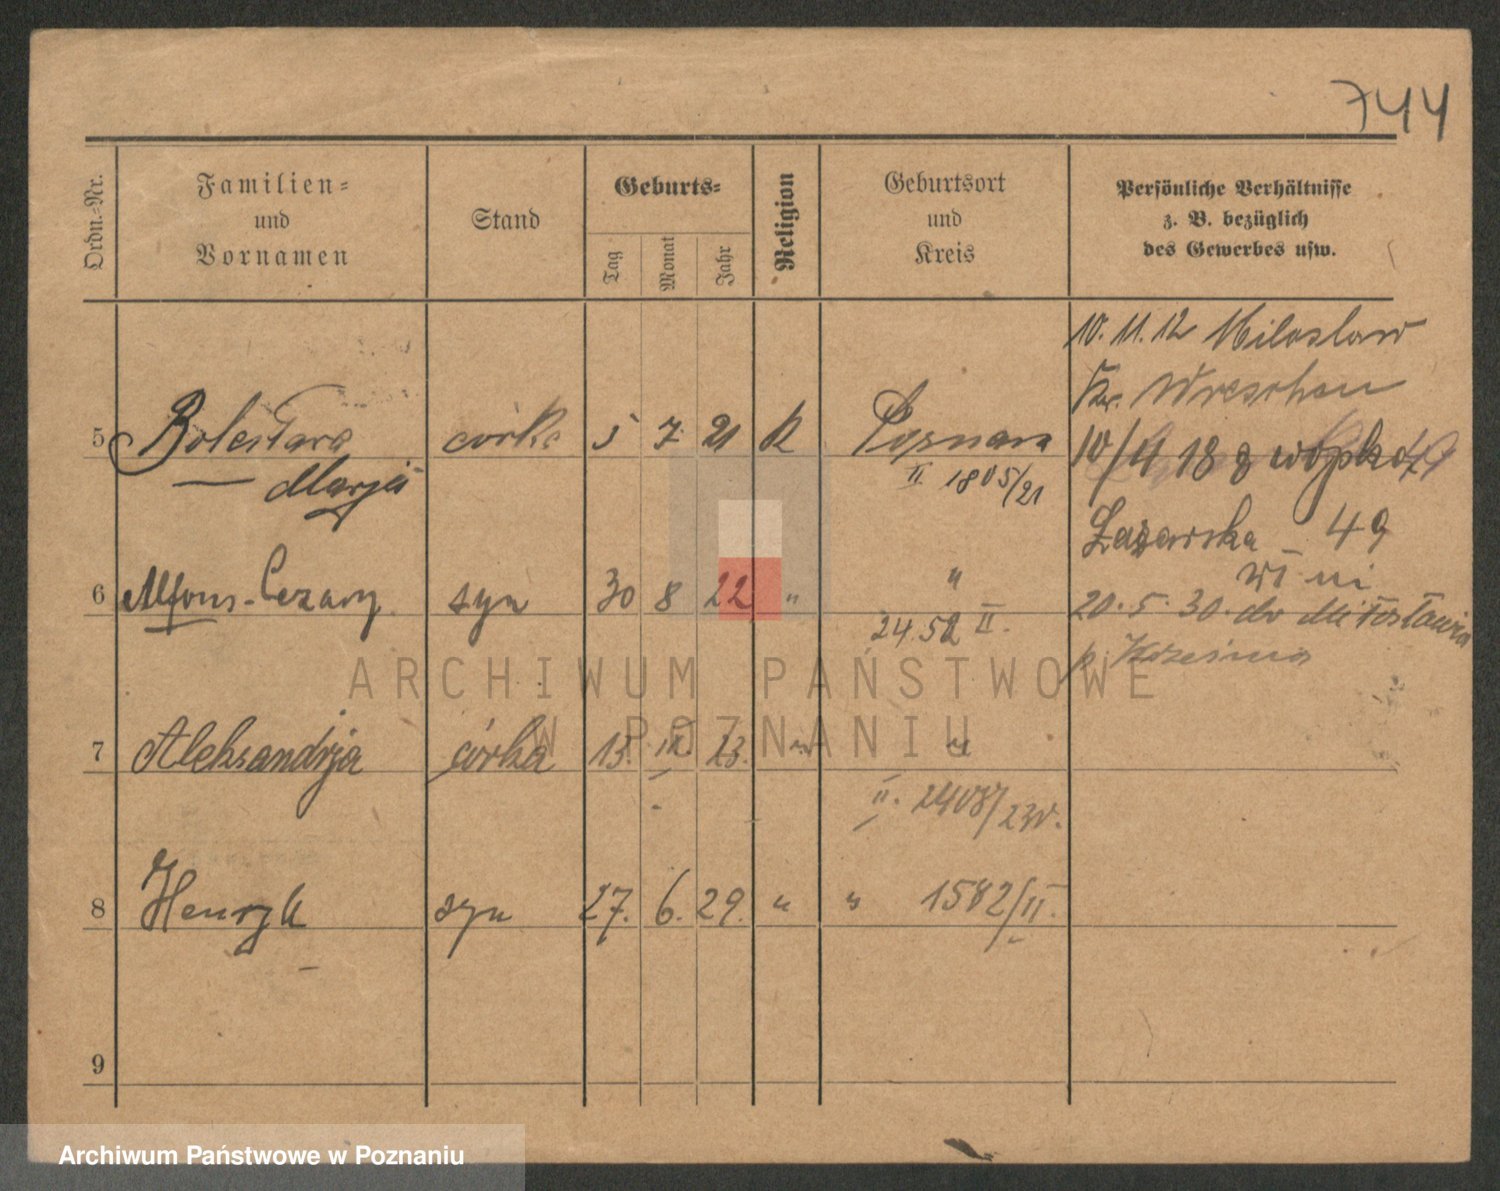 744
Ordn.-Nr.
Familien-
und
Vornamen
Stand
Geburts-
Tag
Monat
Jahr
Religion
Geburtsort
und
Kreis
Persönliche Verhältnisse
z. B. bezüglich
des Gewerbes usw.
10. 11. 12 Miloslaw
Kr. Wreschen
5 córka 5 7. 21 K Poznań
10/4 18 z wojska
Marja
II 1805/21
Łazarska 49
6 Alfons-Cezary syn 30 8 22 " "
24.52 II.
20.5.30. do Miłosławia
ARCHIWUM PAŃSTWOWE
W POZNANIU
7 Aleksandrja córka 13. IX. 23. " "
II. 2408/23
8 Henryk syn 27. 6. 29. " " 1582/II.
9
Archiwum Państwowe w Poznaniu